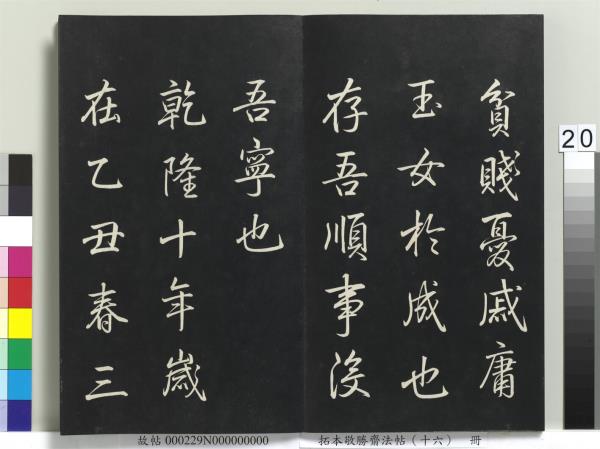 貧賤憂戚庸
玉女於成也
存吾順事沒
吾寧也
乾隆十年歲
在乙丑春三
20
故帖000229N000000000
拓本敬勝齋法帖（十六） 冊